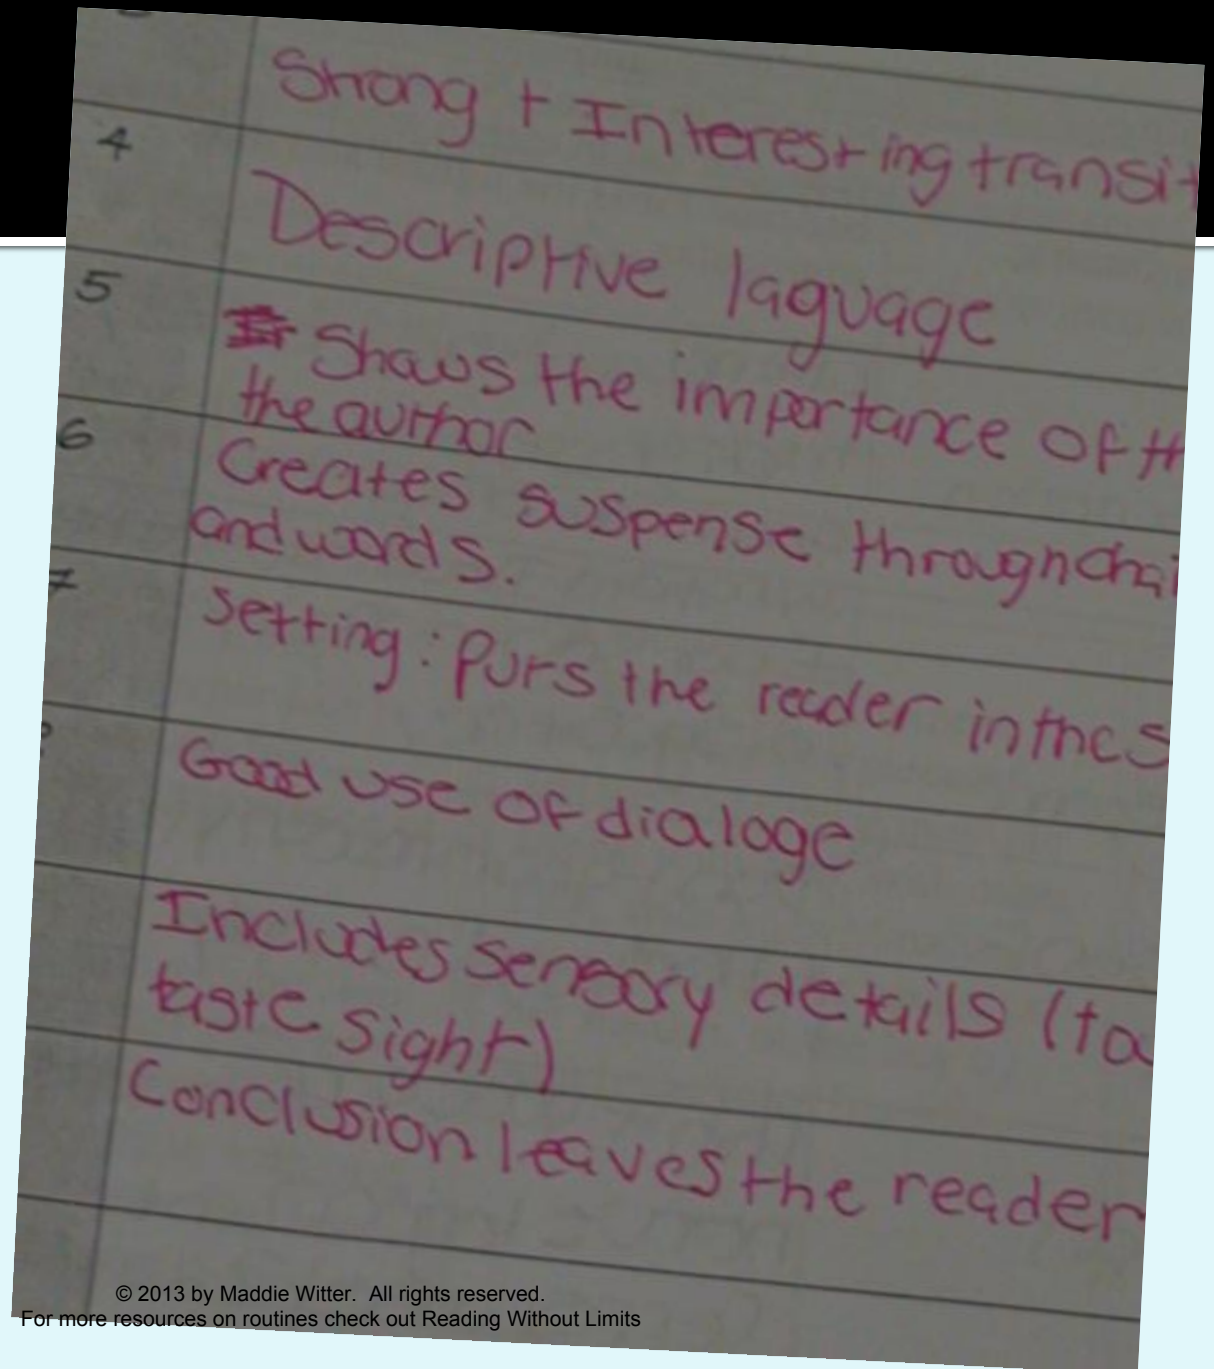 Strong + Interesting transit
4
Descriptive laguage
5
Shows the importance of th
the author
6
Creates suspense through chai
and words.
7
Setting: Puts the reader in the s
Good use of dialoge
Includes sensory details (to
taste sight)
Conclusion leaves the reader
© 2013 by Maddie Witter. All rights reserved.
For more resources on routines check out Reading Without Limits